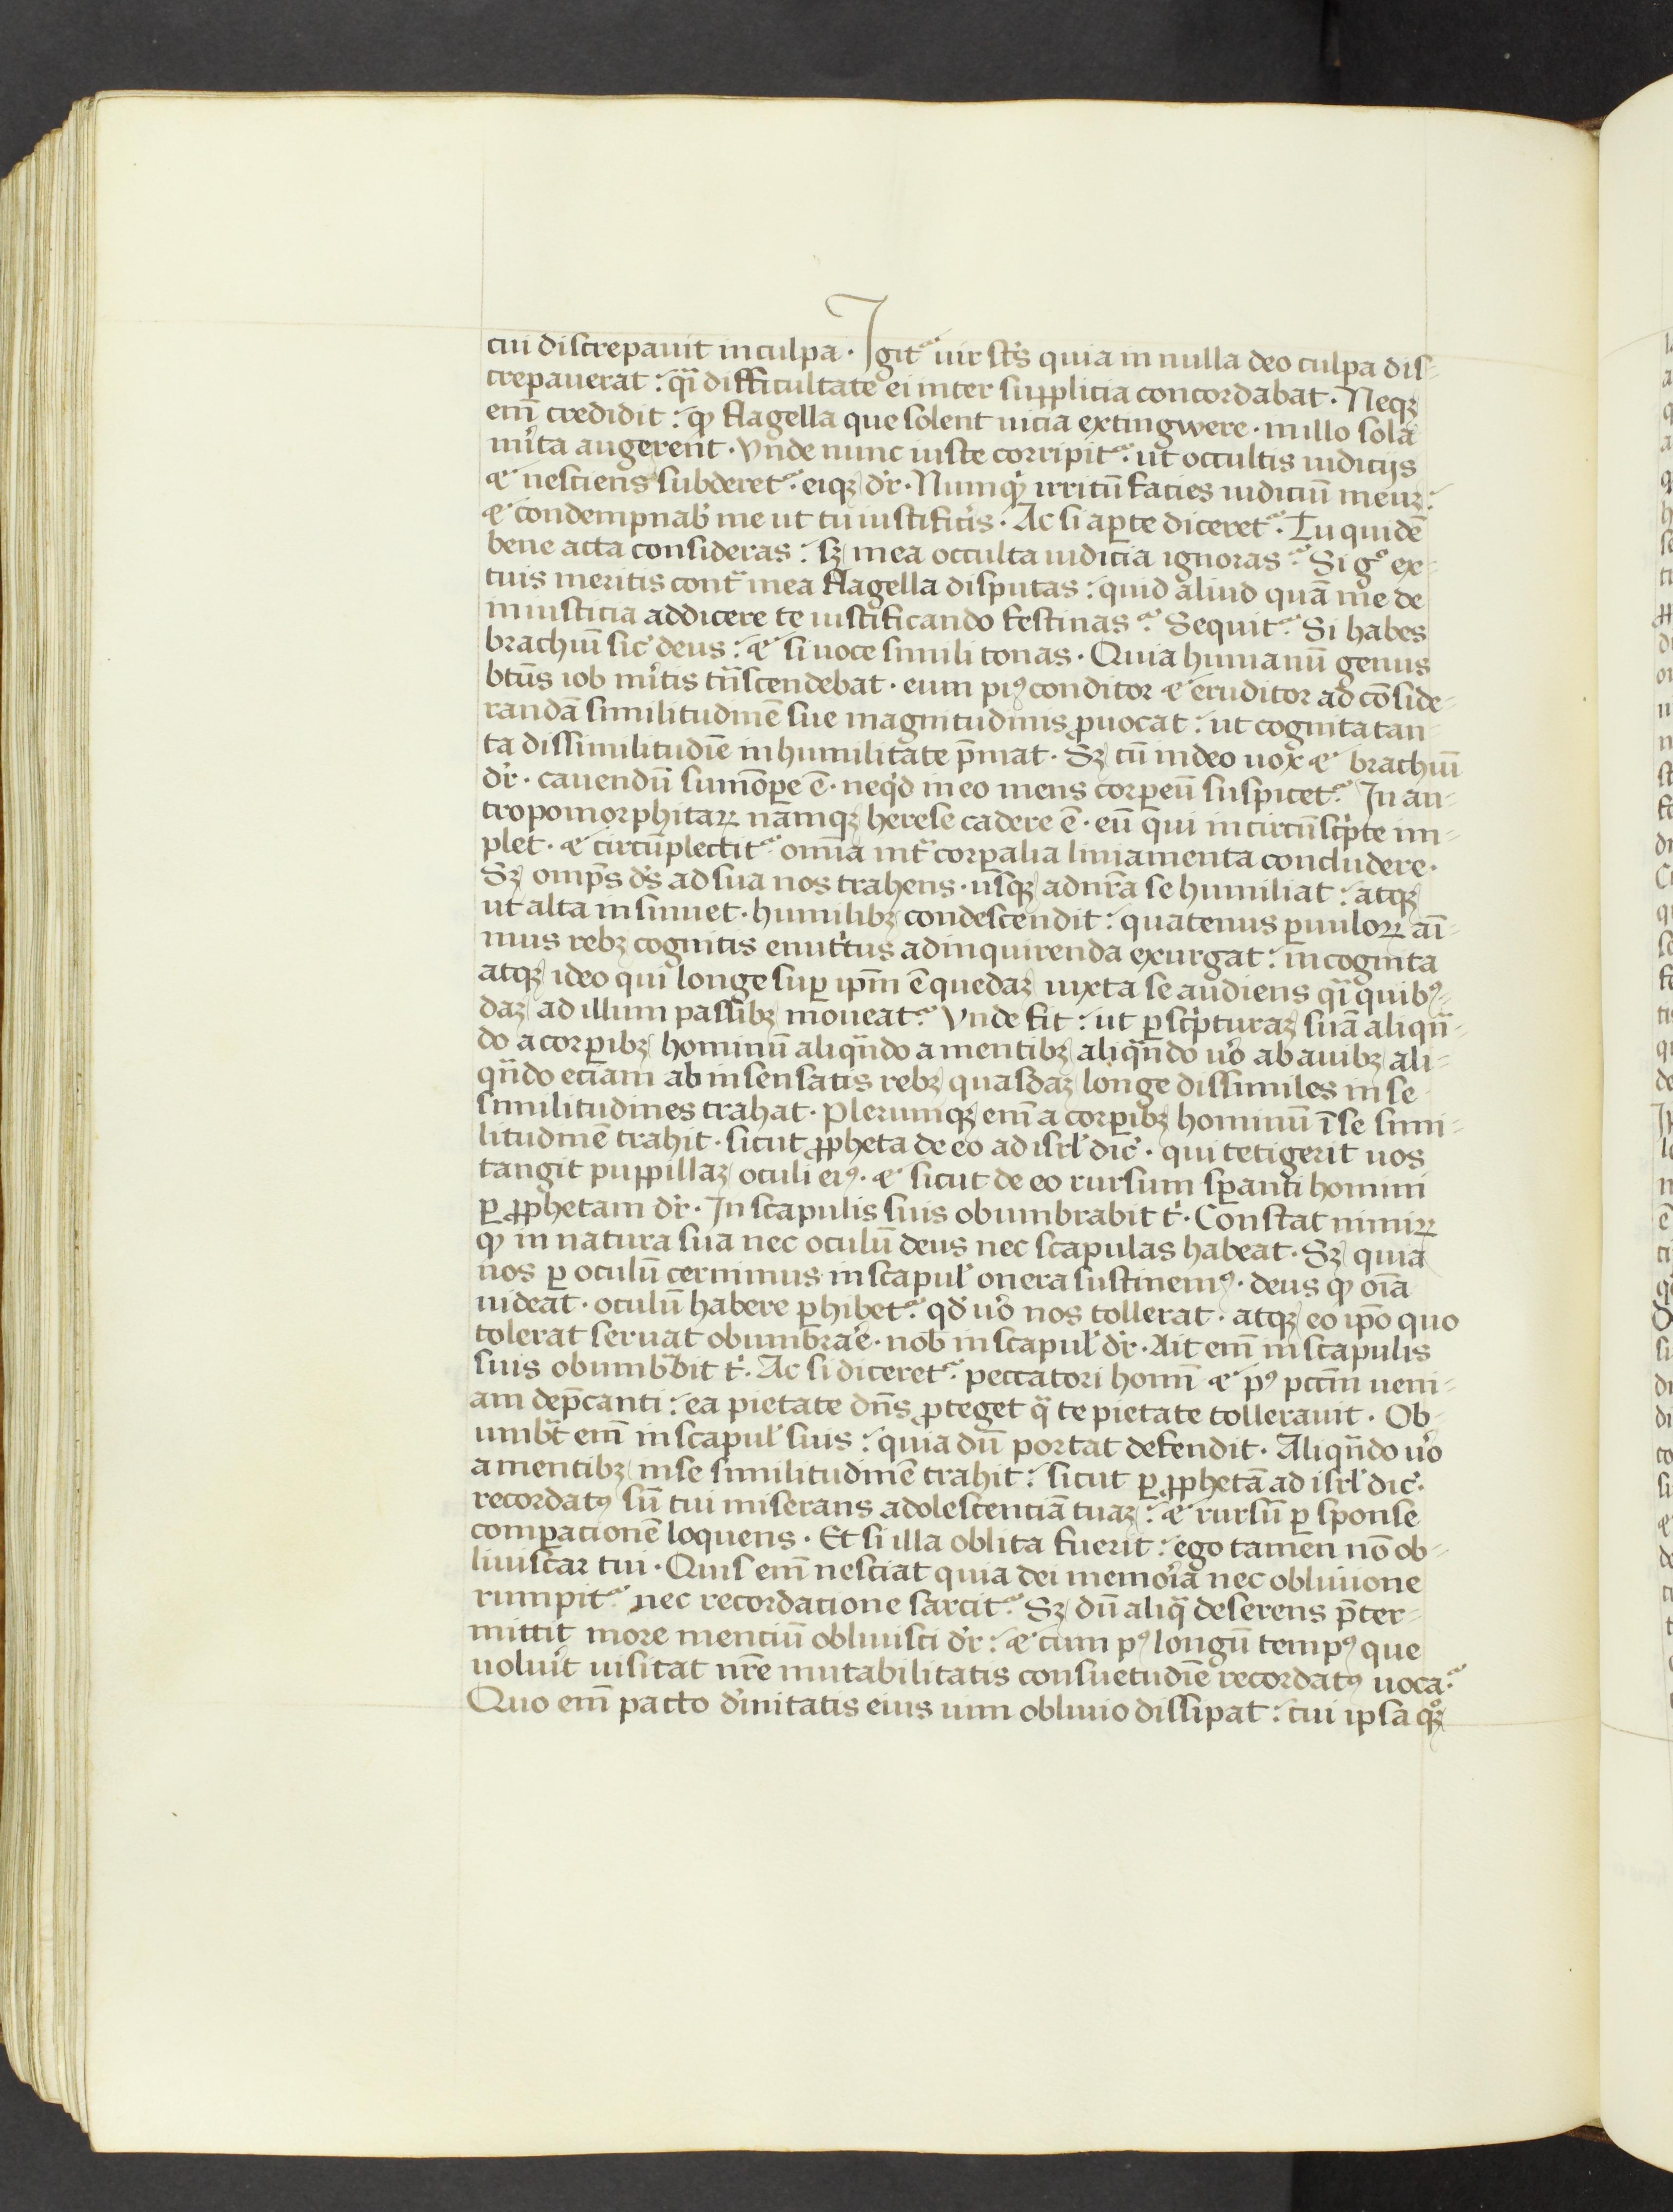 cui discrepauit in culpa. Igit᷑ uir sc̄s quia in nulla deo culpa dis⸗
crepauerat: q̄i difficultate ei inter supplicia concordabat. Neqꝫ
em̄ credidit: qͦ flagella que solent uicia extingwere. in illo sola
mˀita augerent. Vnde nunc iuste corripit᷑. ut occultis iudicijs
⁊ nesciens subderet᷑. eiqꝫ dr̄. Numqͥd irritū facies iudiciū meuꝫ:
⁊ condempnabˀ me ut tu iustificˀis. Ac si aꝑte diceret᷑. Tu quidē
bene acta consideras: sꝫ mea occulta iudicia ignoras. Si gͦ ex⸗
tuis meritis contˀ mea flagella disputas: quid aliud quā me de
iniusticia addicere te iustificando festinas. Sequit᷑. Si habes
brachiū sicˀ deus: ⁊ si uoce simili tonas. Quia humanū genus
btūs iob mˀitis tn̄scendebat. eum piꝰ conditor ⁊ eruditor ad cōside⸗
randā similitudinē sue magnitudinis ꝓuocat: ut cognita tan⸗
ta dissimilitudīe in humilitate p̄mat. Sꝫ cū in deo uox ⁊ brachiū
dr̄. cauendū sumōꝑe ē. neqͥd in eo mens corꝑeū suspicet᷑. In an⸗
tropomorphitaꝝ namqꝫ herese cadere ē. eū qui incircūscͥpte im⸗
plet. ⁊ circūplectit᷑ omīa intˀ corꝑalia liniamenta concludere.
Sꝫ omp̄s ds̄ ad sua nos trahens. usqꝫ ad nr̄a se humiliat: atqꝫ
ut alta insinuet. humilibꝫ condescendit: quatenus ꝑuuloꝝ aī⸗
mus rebꝫ cognitis enutˀtus ad inquirenda exurgat: incognita
atqꝫ ideo qui longe suꝑ ipm̄ ē quedaꝫ iuxta se audiens q̄i quibꝰ⸗
daꝫ ad illum passibꝫ moueat᷑. Vnde fit: ut ꝑ scͥpturaꝫ suā aliqn̄⸗
do a corꝑibꝫ hominū aliqn̄do a mentibꝫ aliqn̄do uˀo ab auibꝫ ali⸗
qn̄do eciam ab insensatis rebꝫ quasdaꝫ longe dissimiles in se
similitudines trahat. Plerumqꝫ em̄ a corꝑibꝫ hominū ī se simi⸗
litudinē trahit. sicut ꝓpheta de eo ad isrl̄ dicˀ. qui tetigerit uos
tangit puppillaꝫ oculi eiꝰ. ⁊ sicut de eo rursum sꝑanti homini
ꝑ ꝓphetam dr̄. In scapulis suis obumbrabit tͥ. Constat nimiꝝ
qͦ in natura sua nec oculū deus nec scapulas habeat. Sꝫ quia
nos ꝑ oculū cernimus in scapulˀ onera sustinemꝰ. deus qͦ oīa
uideat. oculū habere ꝑhibet᷑. qd̄ uˀo nos tollerat. atqꝫ eo ipō quo
tolerat seruat obumbraˀe. nobˀ in scapulˀ dr̄. Ait em̄ in scapulis
suis obumbᵃbit tͥ. Ac si diceret᷑. peccatori homī ⁊ pꝰ pcc̄m ueni⸗
am dep̄canti: ea pietate dn̄s ꝓteget qᵃ te pietate tollerauit. Ob⸗
umbᵃt em̄ in scapulˀ suis: quia dū portat defendit. Aliqn̄do uˀo
a mentibꝫ in se similitudinē trahit: sicut ꝑ ꝓphetā ad isrl̄ dicˀ.
recordatꝰ sū tui miserans adolescenciā tuaꝫ: ⁊ rursū ꝑ sponse
comꝑacionē loquens. Et si illa oblita fuerit: ego tamen nō ob⸗
liuiscar tui. Quis em̄ nesciat quia dei memoˀia nec obliuione
rumpit᷑ nec recordacione sarcit᷑. Sꝫ dū aliqᵃ deserens p̄ter⸗
mittit more menciū obliuisci dr̄: ⁊ cum pꝰ longū tempꝰ que
uoluˀit uisitat nr̄e mutabilitatis consuetudīe recordatꝰ uocat᷑.
Quo em̄ pacto dˀinitatis eius uim obliuio dissipat: cui ipsa qͦqꝫ